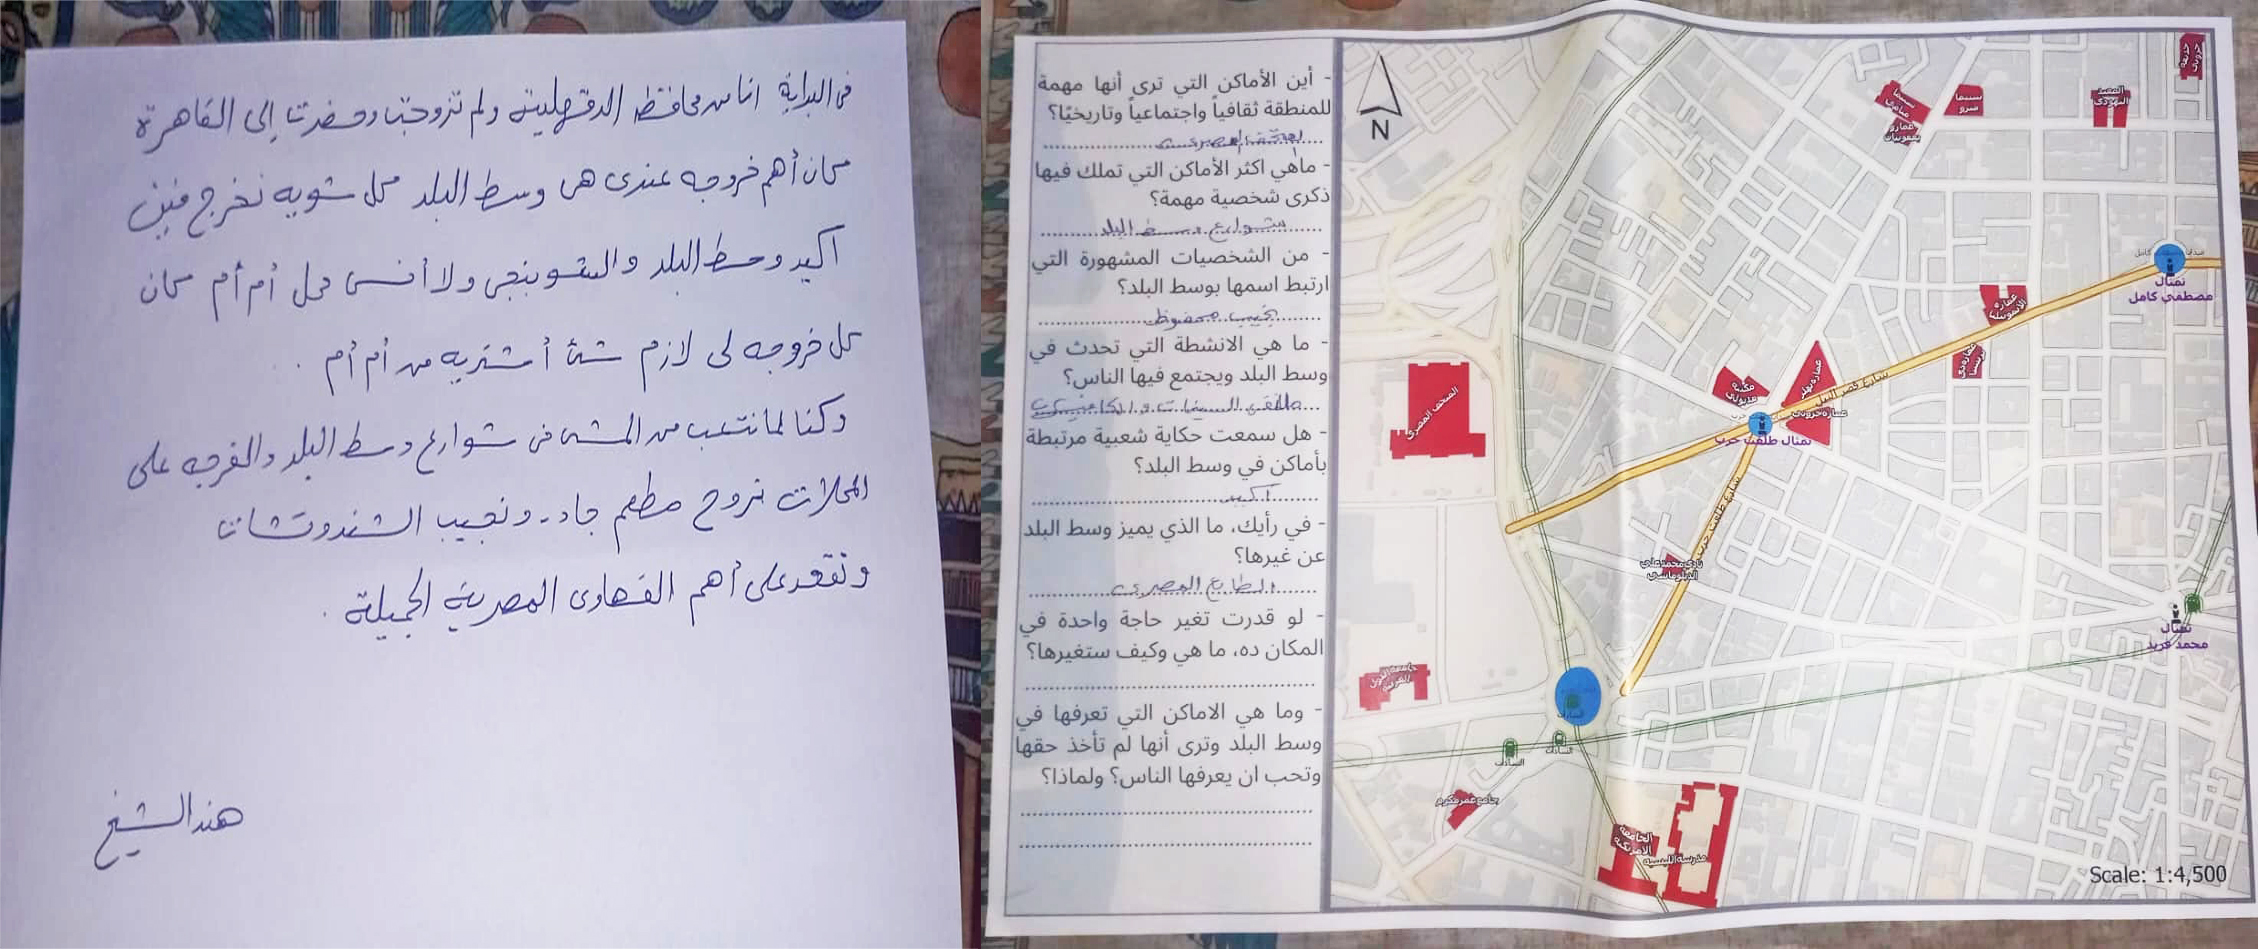 فى البداية انا من محافظة الدقهلية ولم تزوجت وحضرت إلى القاهرة
كان أهم خروجه عندى هى وسط البلد كل شويه نخرج فين
أكيد وسط البلد والشوبنجى ولا أنسى محل أم أم كان
كل خروجه لى لازم شئ أشتريه من أم أم .
وكنا لما نتعب من المشى فى شوارع وسط البلد والفرجه على
المحلات نروح مطعم جاد . ونجيب الشندوتشات
ونقعد على أهم القهاوى المصرية الجميلة .
هند الشيخ
- أين الأماكن التي ترى أنها مهمة
للمنطقة ثقافياً واجتماعياً وتاريخيًا؟
المتحف المصرى
- ماهي اكثر الأماكن التي تملك فيها
ذكرى شخصية مهمة؟
شوارع وسط البلد
- من الشخصيات المشهورة التي
ارتبط اسمها بوسط البلد؟
نجيب محفوظ
- ما هي الانشطة التي تحدث في
وسط البلد ويجتمع فيها الناس؟
- هل سمعت حكاية شعبية مرتبطة
بأماكن في وسط البلد؟
أكيد
- في رأيك، ما الذي يميز وسط البلد
عن غيرها؟
الطابع المصرى
- لو قدرت تغير حاجة واحدة في
المكان ده، ما هي وكيف ستغيرها؟
- وما هي الاماكن التي تعرفها في
وسط البلد وترى أنها لم تأخذ حقها
وتحب ان يعرفها الناس؟ ولماذا؟
N
سينما
مترو
المعبد
اليهودي
تمثال
مصطفي كامل
عمارة
الايموبيليا
مكتبة
مدبولي
عمارة بهلر
شارع قصر النيل
عمارة جروبي
تمثال طلعت حرب
المتحف المصري
شارع طلعت حرب
نادي محمد علي
الدبلوماسي
تمثال
محمد فريد
جامعة الدول
العربية
السادات
السادات
السادات
جامع عمر مكرم
الجامعة
الامريكية
مدرسة الليسيه
Scale: 1:4,500